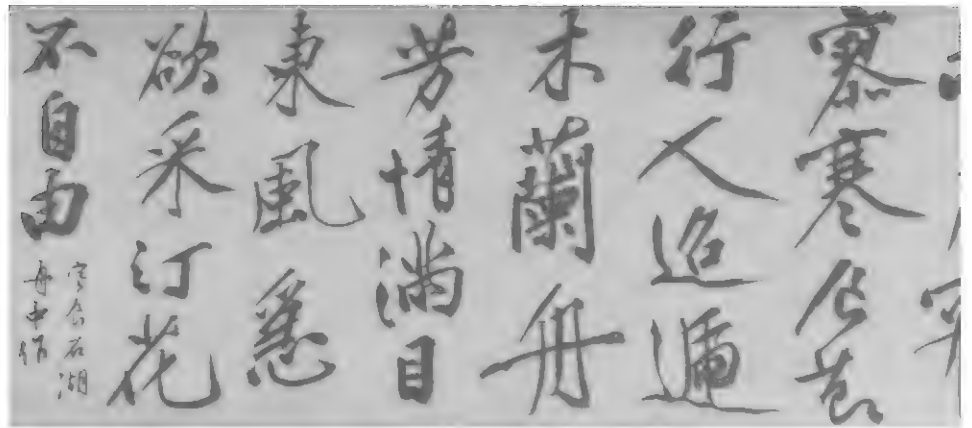 寒食節
行人迢遞
木蘭舟
芳情滿目
東風惡
欲采汀花
不自由
寒食石湖
舟中作